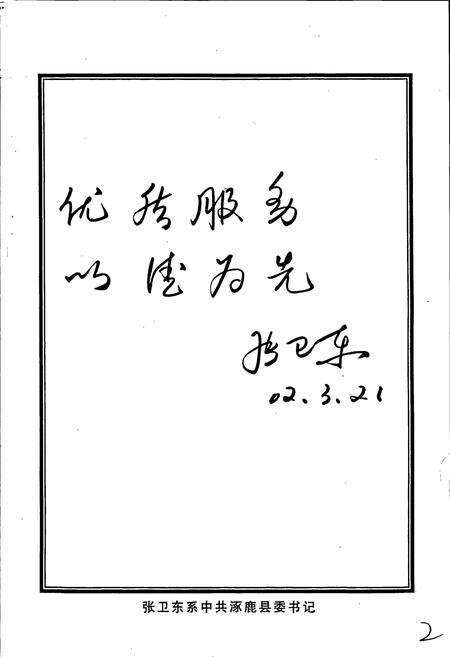 优质服务
以德为先
张卫东
02.3.21
张卫东系中共涿鹿县委书记
2